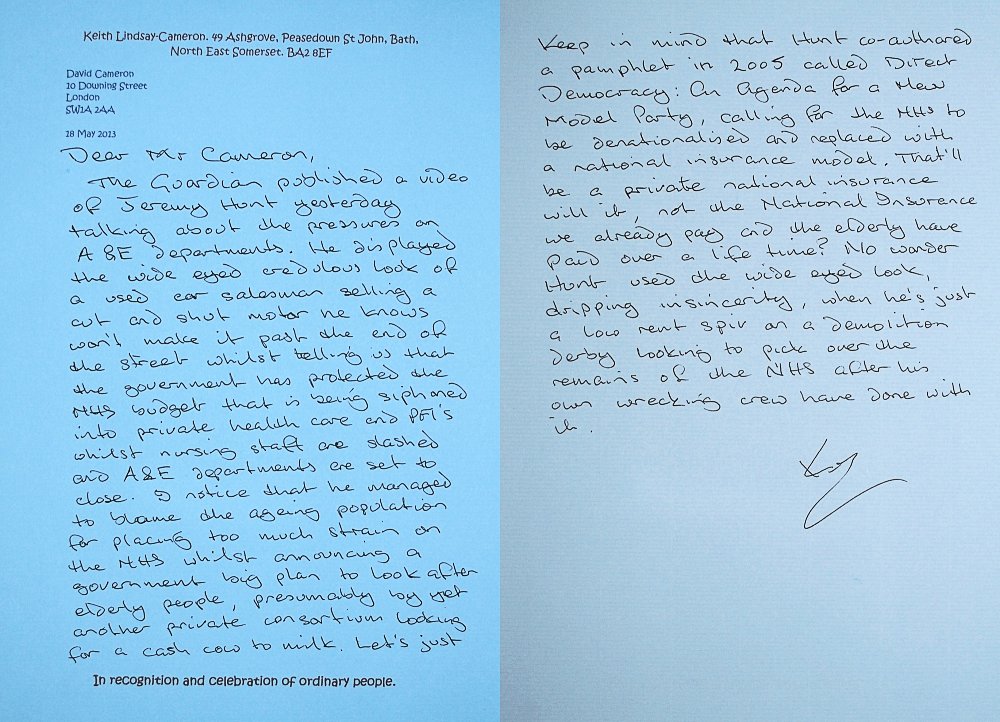 Keith Lindsay-Cameron. 49 Ashgrove, Peasedown St John, Bath,
North East Somerset. BA2 8EF
David Cameron
10 Downing Street
London
SW1A 2AA
18 May 2013
Dear Mr Cameron,
The Guardian published a video
of Jeremy Hunt yesterday
talking about the pressures on
A&E departments. He displayed
the wide eyed credulous look of
a used car salesman selling a
cut and shut motor he knows
won't make it past the end of
the street whilst telling us that
the government has protected the
NHS budget that is being siphoned
into private health care and PFI's
whilst nursing staff are slashed
and A&E departments are set to
close. I notice that he managed
to blame the ageing population
for placing too much strain on
the NHS whilst announcing a
government big plan to look after
elderly people, presumably by yet
another private consortium looking
for a cash cow to milk. Let's just
In recognition and celebration of ordinary people.
Keep in mind that Hunt co-authored
a pamphlet in 2005 called Direct
Democracy: An Agenda for a New
Model Party, calling for the NHS to
be denationalised and replaced with
a national insurance model. That'll
be a private national insurance
will it, not the National Insurance
we already pay and the elderly have
paid over a life time? No wonder
Hunt used the wide eyed look,
dripping insincerity, when he's just
a low rent spiv on a demolition
derby looking to pick over the
remains of the NHS after his
own wrecking crew have done with
it.